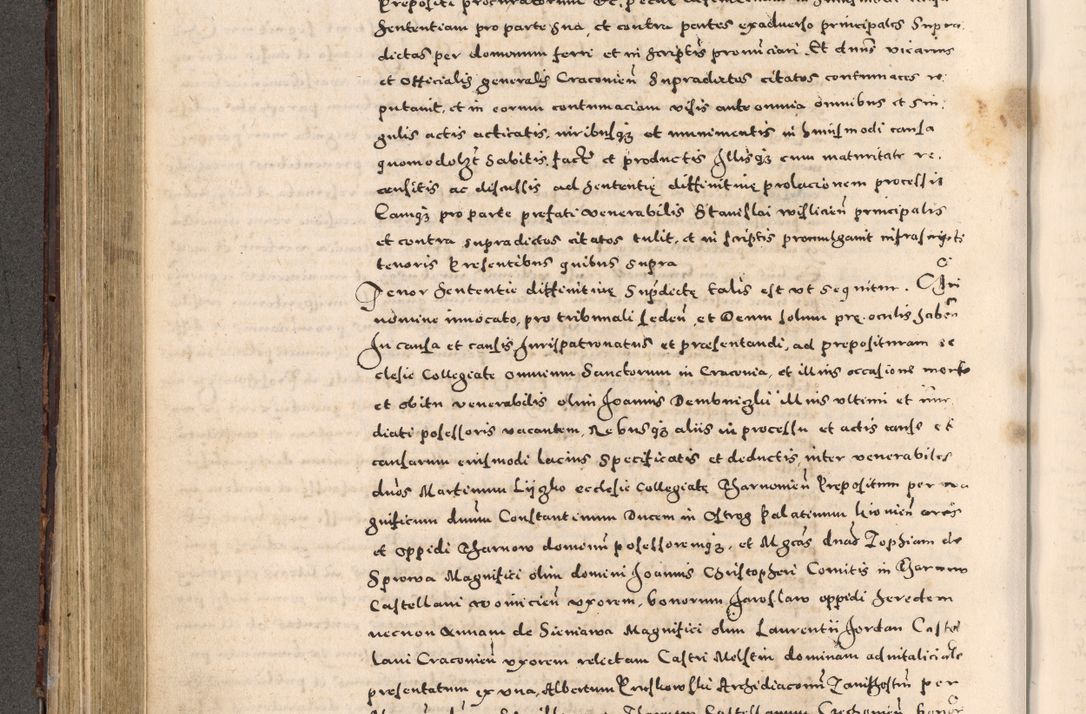 Prepositi procuratorum
Sententiam pro parte sua, et contra partes exadverso principales supra
dictas per dominum ferri et in scriptis pronunciari. Et dnus vicarius
et Officialis generalis Cracovieñ Supradictos citatos contumaces re
putavit, et in eorum contumaciam visis ante omnia omnibus et sin
gulis actis acticatis, iuribusqz et munimentis in huiusmodi causa
quomodolzt habitis, fact et productis Illisqz cum maturitate re
censitis ac discussis ad sententię diffinitivę prolacionem processit
Eamqz pro parte prefati venerabilis Stanislai wislicieñ principalis
et contra supradictos citatos tulit, et in scriptis promulgavit infrascripti
tenoris Presentibus quibus supra
Tenor Sententie diffinitivę Supdictę talis est ut sequitur. Chri
nomine invocato, pro tribunali sedeñ, et Deum solum prę oculis habeñ
In causa et causis Jurispatronatus et præsentandi, ad preposituram ec
clesie Collegiate omnium Sanctorum in Cracovia, et illius occasione morte
et obitu venerabilis olim Joannis Dembniczkii illius ultimi et im
diati possessoris vacantem, Rebusqz aliis in processu et actis cause et
causarum eiusmodi lacius Specificatis et deductis, inter venerabiles
dnos Martinum Lijczko ecclesie Collegiatę Tharnovieñ Prepositum per ma
gnificum dnum Constantinum Ducem in Ostrog Palatinum kiovieñ arcis
et Oppidi Tharnow dominum possessoremqz, et Mgcas dnas Zophiam de
Sprowa Magnifici olim domini Joannis Christopheri Comitis in Tharnow
Castellani woinicieñ uxorem, bonorum Jaroslaw oppidi heredem
necnon Annam de Sieniawa Magnifici olim Laurentii Jordan Caste
lani Cracovieñ uxorem relictam Castri Melstin dominam advitalicialē
presentatum ex una, Albertum Kruskowskii Archidiaconum Zavichosteñ per